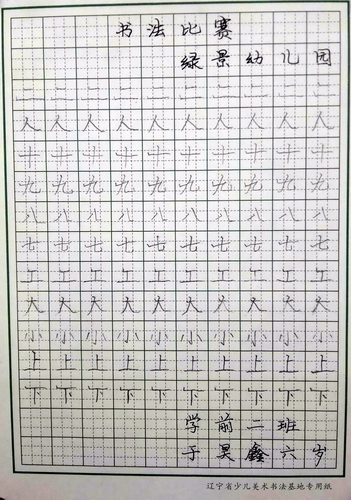 书法比赛
绿景幼儿园
二二二二二二二二二二
人人人人人人人人人人
井井井井井井井井井井
九九九九九九九九九九
八八八八八八八八八八
七七七七七七七七七七
工工工工工工工工工工
大大大大大大大大大大
小小小小小小小小小小
上上上上上上上上上上
下下下下下下下下下下
学前二班
于昊鑫六岁
辽宁省少儿美术书法基地专用纸